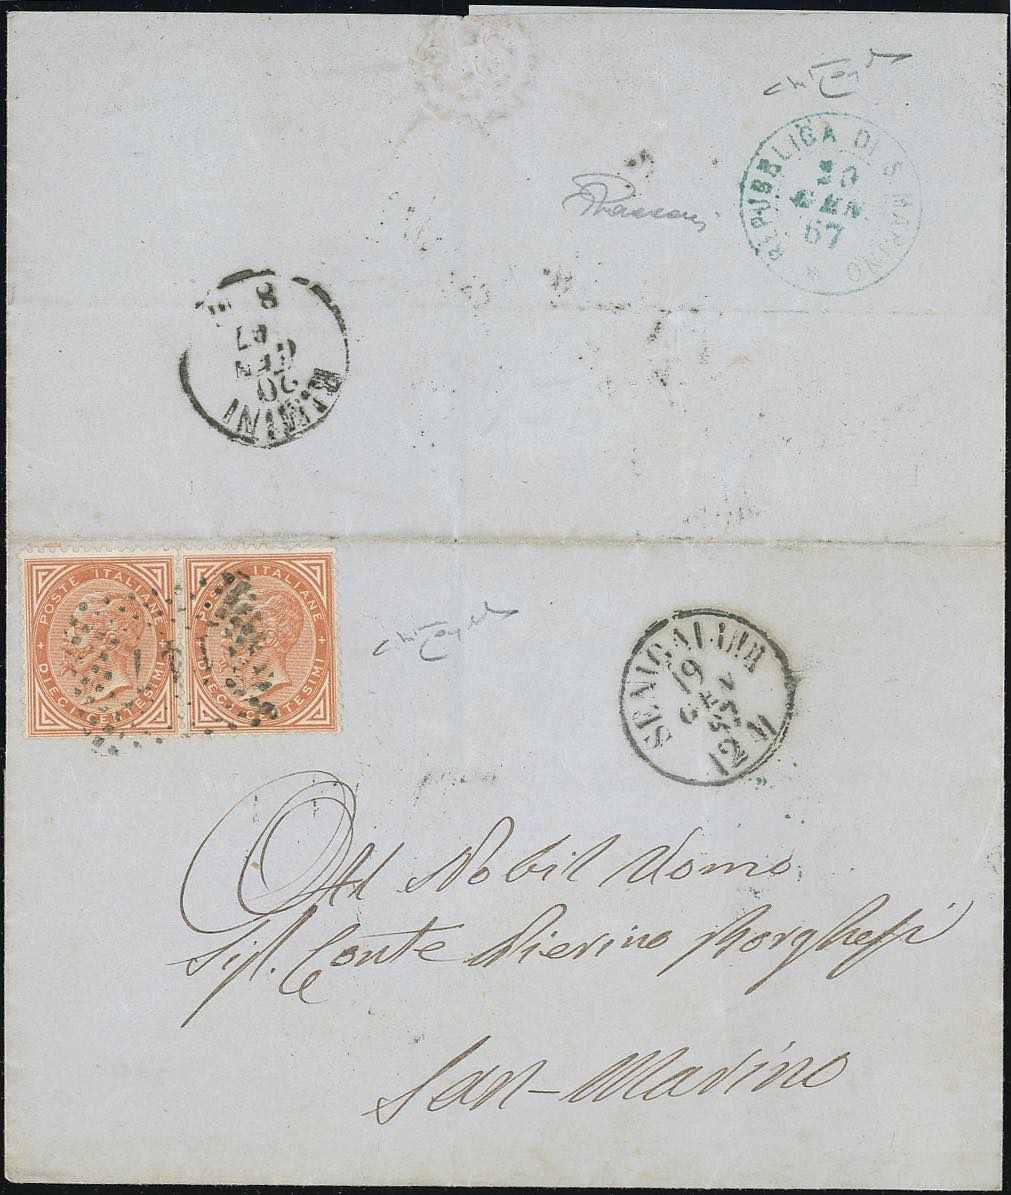 REPUBBLICA DI S. MARINO
20
GEN
67
8
67
GEN
20
RIMINI
POSTE ITALIANE
DIECI CENTESIMI
POSTE ITALIANE
DIECI CENTESIMI
19
GEN
67
12 M
Al Nobil Uomo
Sig. Conte Pierino Borghesi
San-Marino